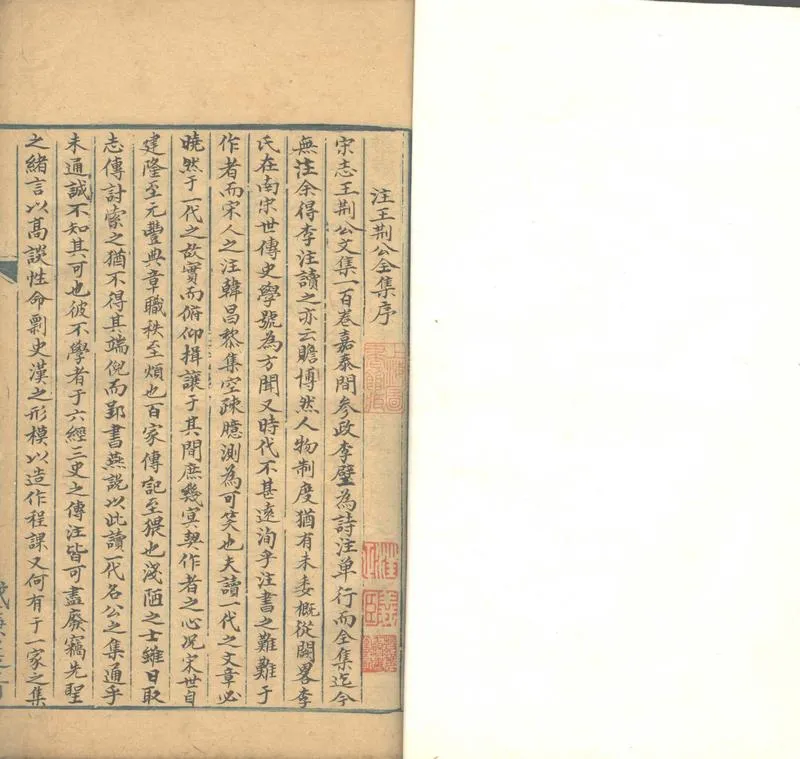 注王荆公全集序
宋志王荆公文集一百卷嘉泰間参政李壁為詩注单行而全集迄今
無注余得李注讀之亦云贍博然人物制度猶有未委概從闕畧李
氏在南宋世傳史學號為方聞又時代不甚遠洵乎注書之難難于
作者而宋人之注韓昌黎集空疎臆測為可笑也夫讀一代之文章必
曉然于一代之故實而俯仰揖讓于其間庶幾冥契作者之心况宋世自
建隆至元豐典章職秩至煩也百家傳記至猥也淺陋之士雖日取
志傳討索之猶不得其端倪而郢書燕説以此讀一代名公之集通乎
未通誠不知其可也彼不學者于六經三史之傳注皆可盡廢竊先聖
之緒言以髙談性命剽史漢之形模以造作程課又何有于一家之集